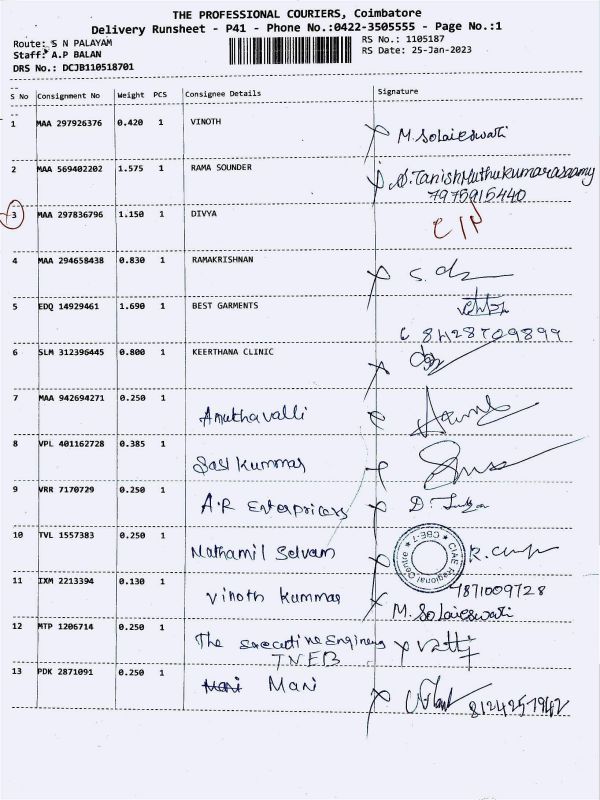 THE PROFESSIONAL COURIERS, Coimbatore
Delivery Runsheet - P41 - Phone No.:0422-3505555 - Page No.:1
Route: S N PALAYAM
RS No.: 1105187
Staff: A.P BALAN
RS Date: 25-Jan-2023
DRS No.: DCJB110518701
S No Consignment No Weight PCS Consignee Details Signature
1 MAA 297926376 0.420 1 VINOTH M. Solaieswati
2 MAA 569402202 1.575 1 RAMA SOUNDER
7975915440
3 MAA 297836796 1.150 1 DIVYA
4 MAA 294658438 0.830 1 RAMAKRISHNAN
5 EDQ 14929461 1.690 1 BEST GARMENTS
8428709899
6 SLM 312396445 0.800 1 KEERTHANA CLINIC
7 MAA 942694271 0.250 1 Amuthavalli
8 VPL 401162728 0.385 1 Sasi Kummar
9 VRR 7170729 0.250 1 A.R Enterprices
10 TVL 1557383 0.250 1 Mathamil Selvam
CIAE Regional Centre CBE-7
11 IXM 2213394 0.130 1 Vinoth Kummar 7871009728
M. Solaieswati
12 MTP 1206714 0.250 1 The executive Engineer
TNEB
13 PDK 2871091 0.250 1 Mani Mani
8124257942